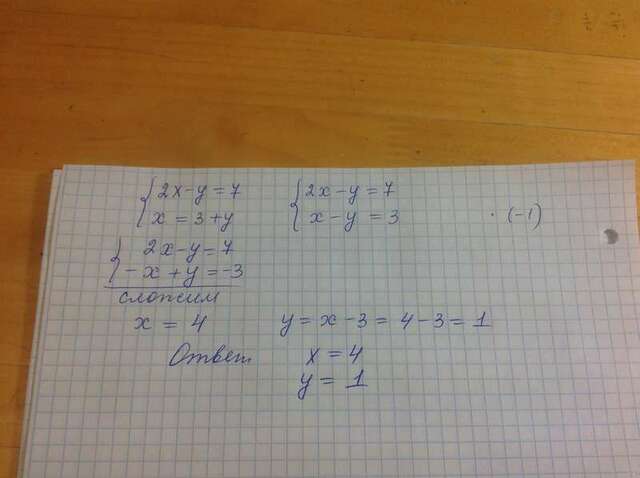 2x-y=7 2x-y=7
x=3+y x-y=3 ·(-1)
2x-y=7
-x+y=-3
сложим
x=4 y=x-3=4-3=1
Ответ x=4
y=1